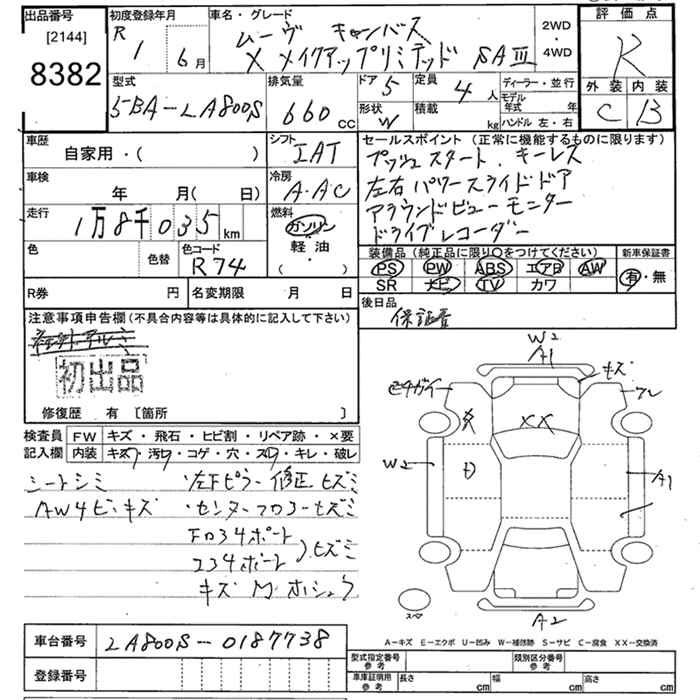 出品番号 初度登録年月 車名・グレード 2WD・4WD 評価点
[2144] R 1 6月 ムーヴ キャンバス R
8382 X メイクアップリミテッド SAⅢ
型式 排気量 ドア 定員 ディーラー・並行 外装 内装
5BA-LA800S 660 CC 5 4人 モデル年式 年 C B
形状 W 積載 kg ハンドル 左・右
車歴 シフト セールスポイント (正常に機能するものに限ります)
自家用・( ) IAT プッシュスタート、キーレス
車検 冷房 左右パワースライドドア
年 月( 日) A・AC アラウンドビューモニター
走行 燃料 ドライブレコーダー
1万8千035km ガソリン 軽・油 ・( )
色 色替 色コード 装備品(純正品に限り○をつけてください) 新車保証書
R74 PS PW ABS エアB AW 有・無
R券 円 名変期限 月 日 SR ナビ TV カワ
注意事項申告欄(不具合内容等は具体的に記入して下さい) 後日品
保証書
初出品
修復歴 有 [箇所 ]
検査員 FW キズ・飛石・ヒビ割・リペア跡・×要
記入欄 内装 キズ・汚・コゲ・穴・スレ・キレ・破レ
シートシミ ・左Fピラー修正ヒズミ
AW4ビ・キズ ・センターフロアーヒズミ
ポート
ポート )ヒズミ
キズ
W2
A1 キズ
XX
W2 A1
スペア
A2
A-キズ E-エクボ U-凹み W-補修跡 S-サビ C-腐食 XX-交換済
車台番号 LA800S-0187738
型式指定番号 参考 類別区分番号 参考
登録番号 車庫証明用 参考 長さ cm 幅 cm 高さ cm